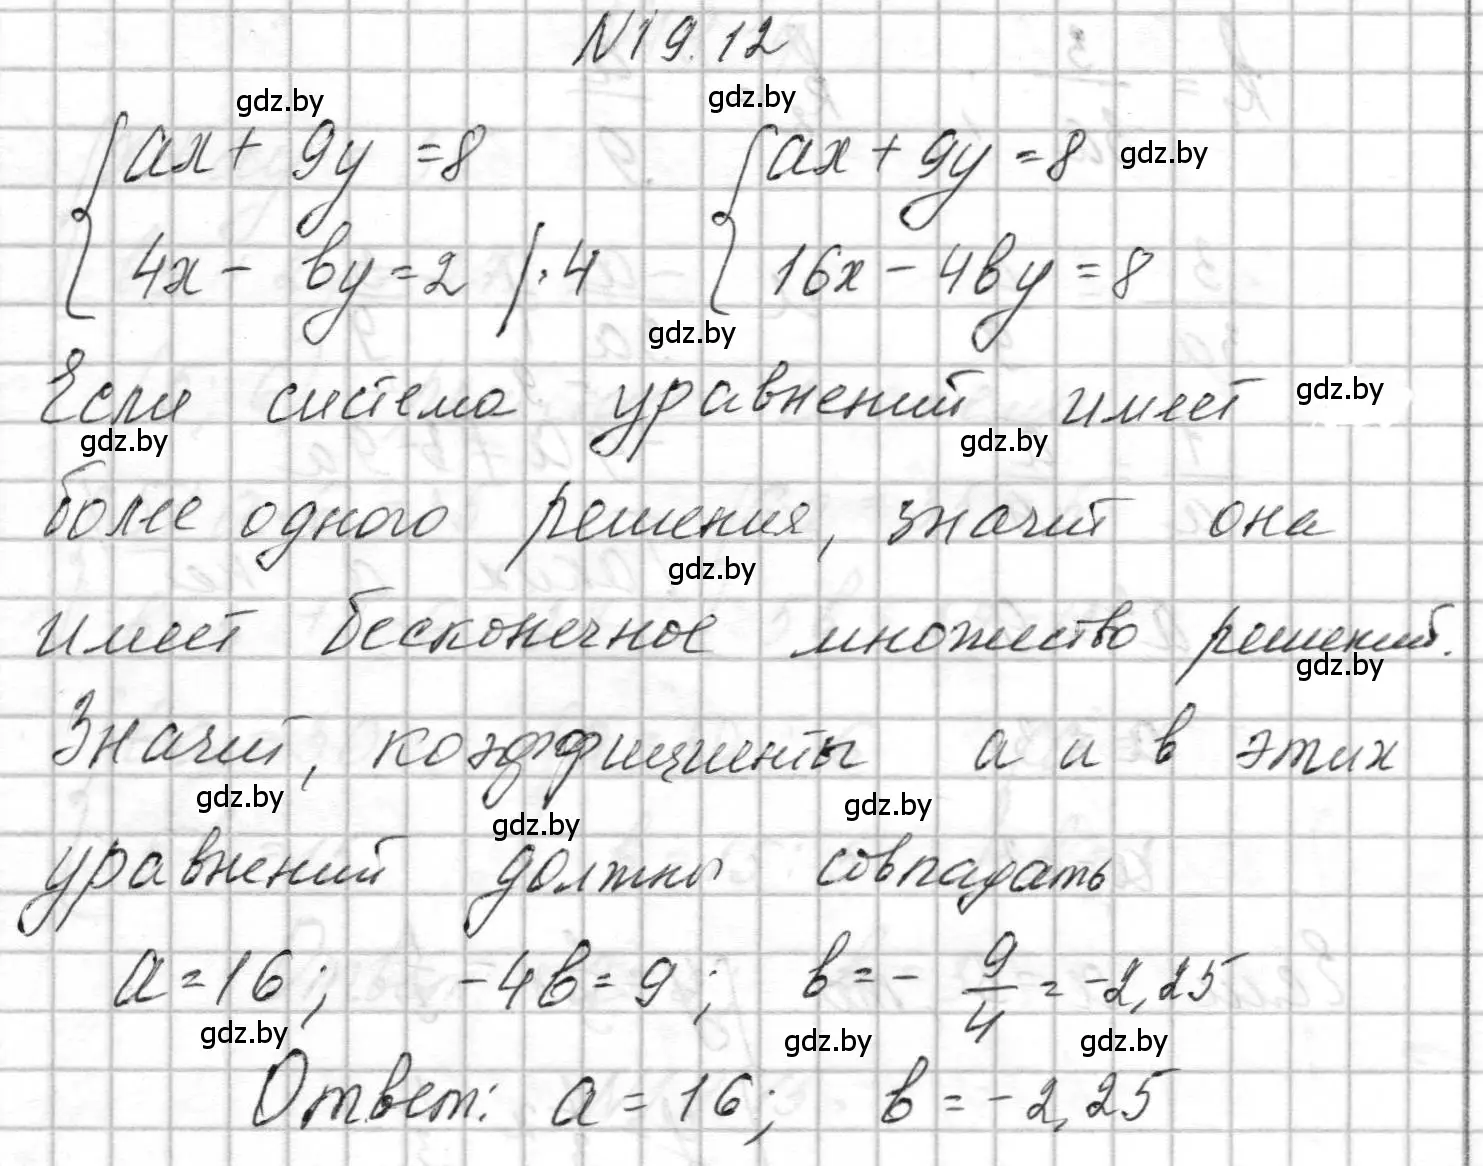 N19.12
gdz.by gdz.by
ax + 9y = 8 ax + 9y = 8 gdz.by
4x - by = 2 | · 4 16x - 4by = 8
gdz.by
Если система уравнений имеет gdz.by
gdz.by gdz.by
более одного решения, значит она
gdz.by
имеет бесконечное множество решений.
gdz.by
Значит, коэффициенты a и b в этих
gdz.by gdz.by gdz.by
уравнений должны совпадать
a = 16; -4b = 9; b = - 9/4 = -2,25
gdz.by gdz.by gdz.by
Ответ: a = 16; b = -2,25